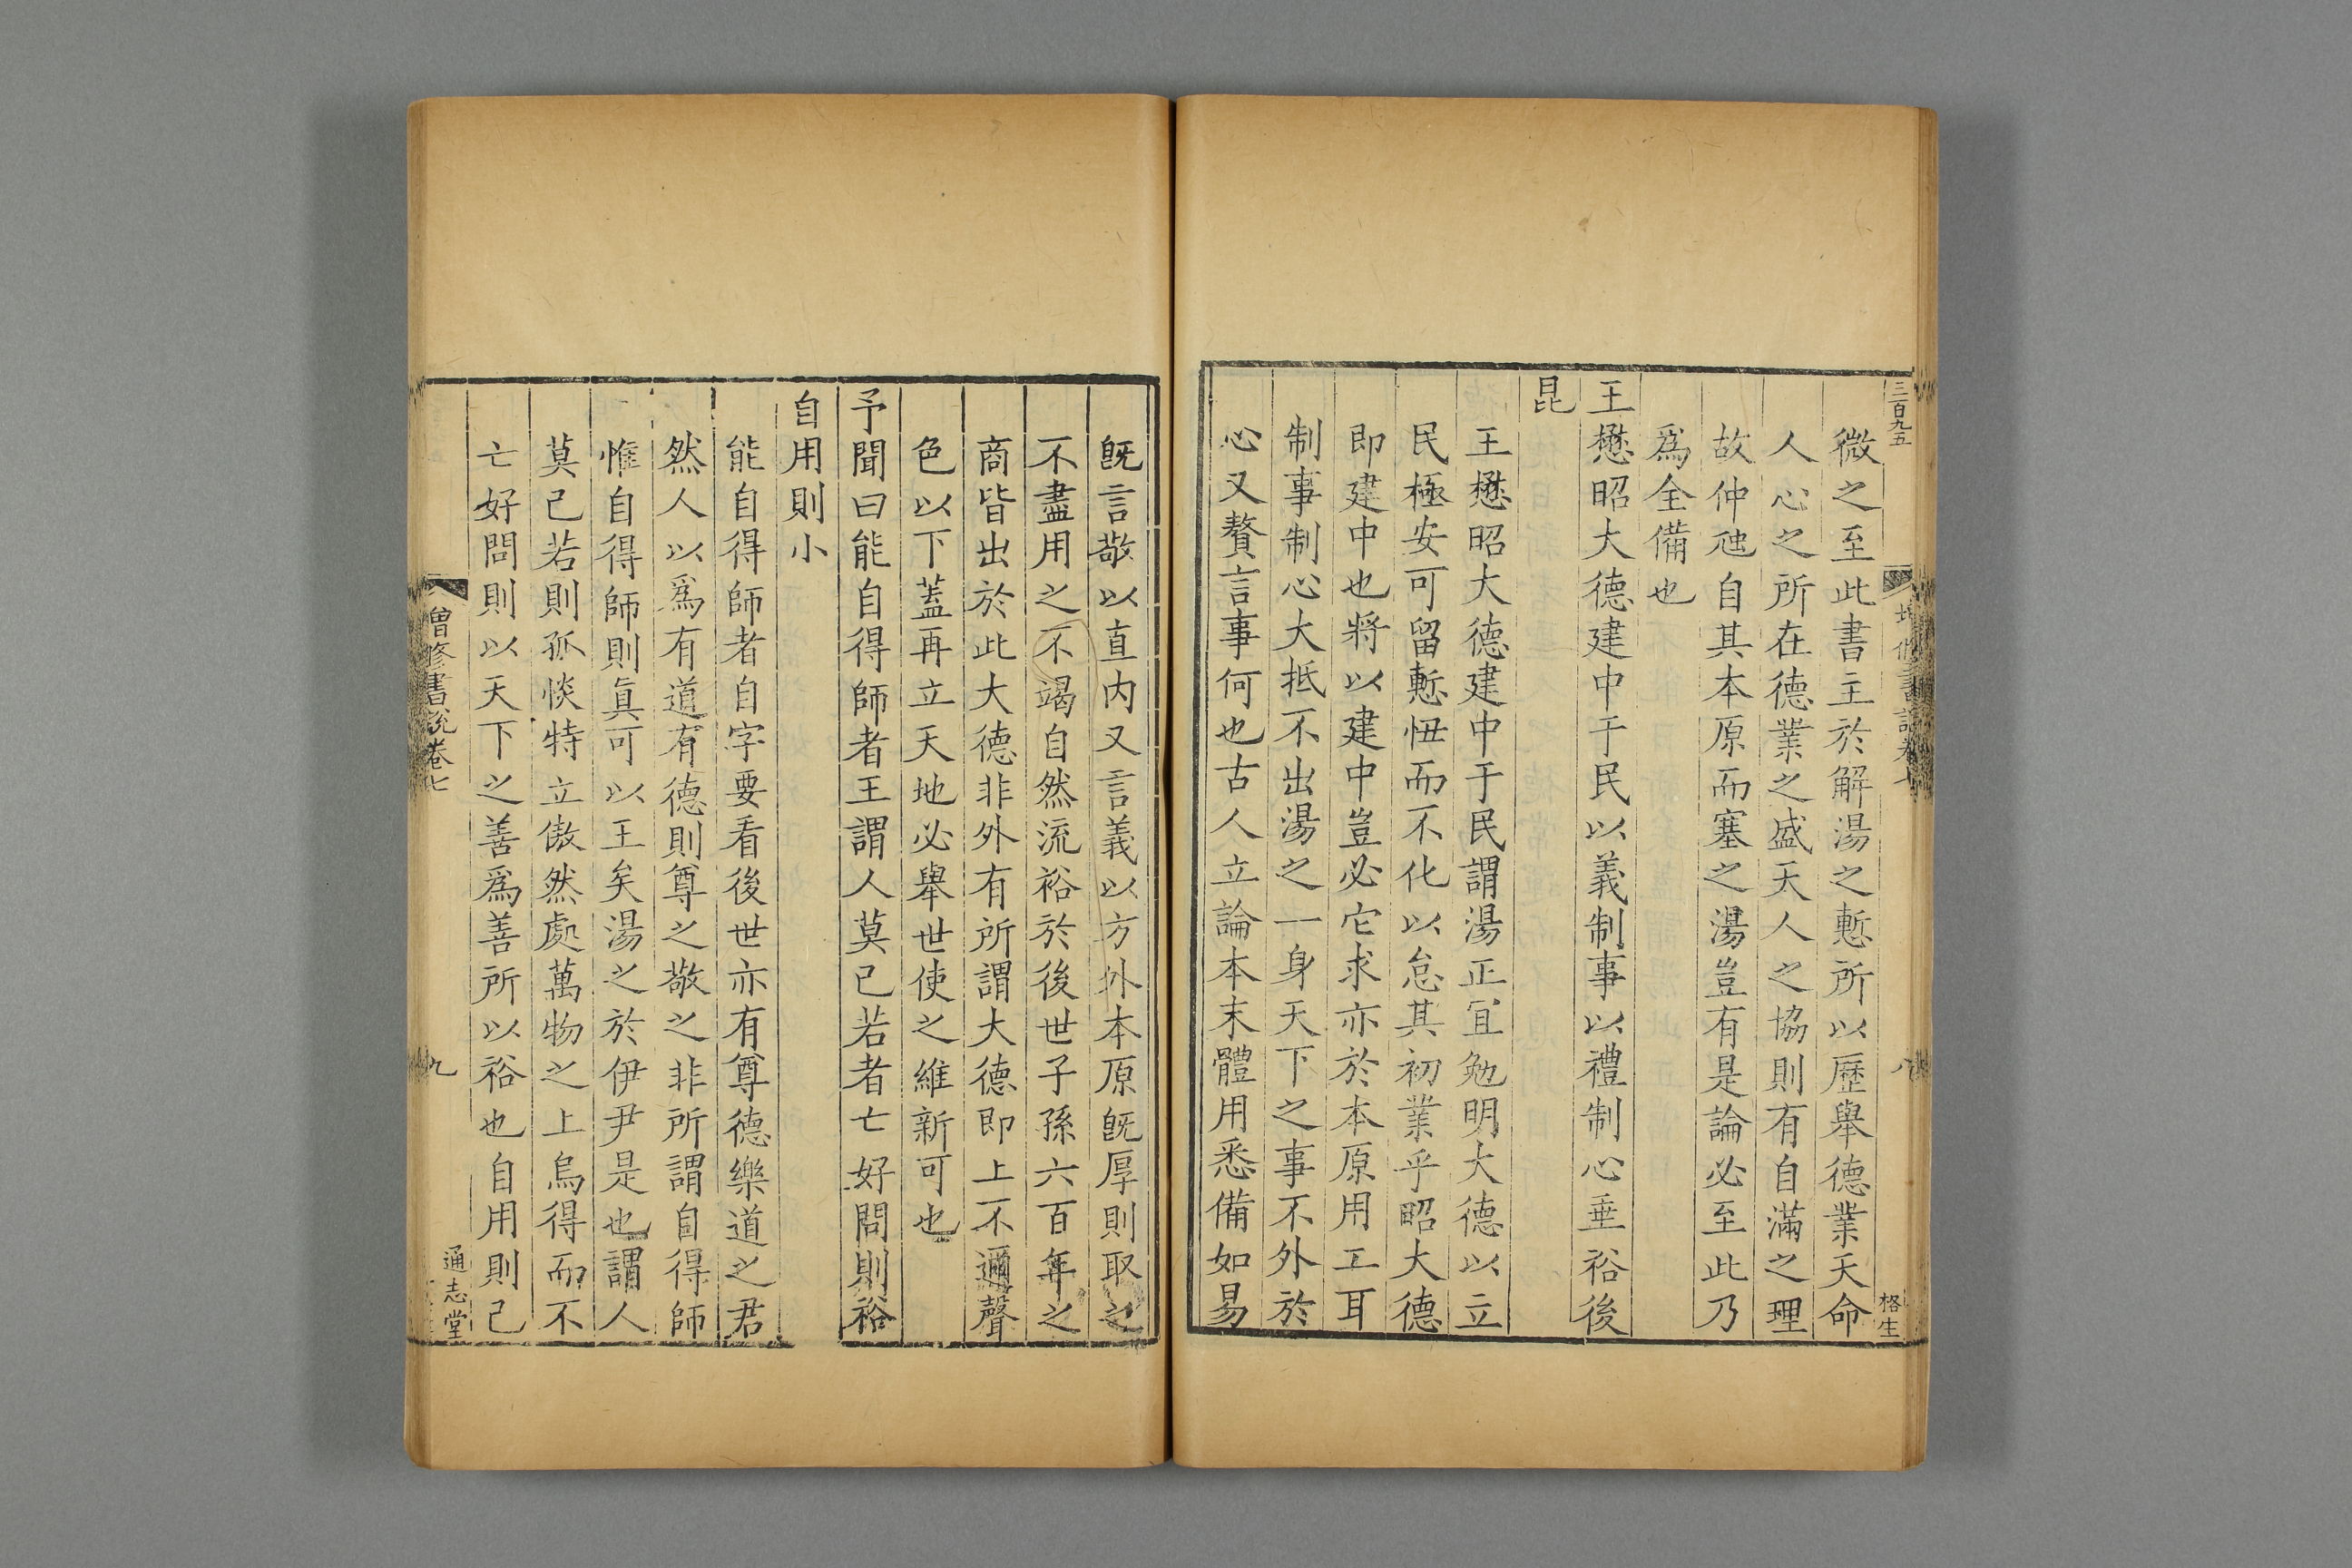 三百九五
微之至此書主於解湯之慙所以歷舉德業天命
人心之所在德業之盛天人之協則有自滿之理
故仲虺自其本原而塞之湯豈有是論必至此乃
爲全備也
王懋昭大德建中于民以義制事以禮制心垂裕後
昆
王懋昭大德建中于民謂湯正宜勉明大德以立
民極安可留慙忸而不化以怠其初業乎昭大德
即建中也將以建中豈必它求亦於本原用工耳
制事制心大抵不出湯之一身天下之事不外於
心又贅言事何也古人立論本末體用悉備如易
格生
旣言敬以直内又言義以方外本原旣厚則取之
不盡用之不竭自然流裕於後世子孫六百年之
商皆出於此大德非外有所謂大德即上不邇聲
色以下蓋再立天地必舉世使之維新可也
予聞曰能自得師者王謂人莫已若者亡好問則裕
自用則小
能自得師者自字要看後世亦有尊德樂道之君
然人以爲有道有德則尊之敬之非所謂自得師
惟自得師則眞可以王矣湯之於伊尹是也謂人
莫已若則孤惔特立傲然處萬物之上烏得而不
亡好問則以天下之善爲善所以裕也自用則已
增修書說卷七
九
通志堂